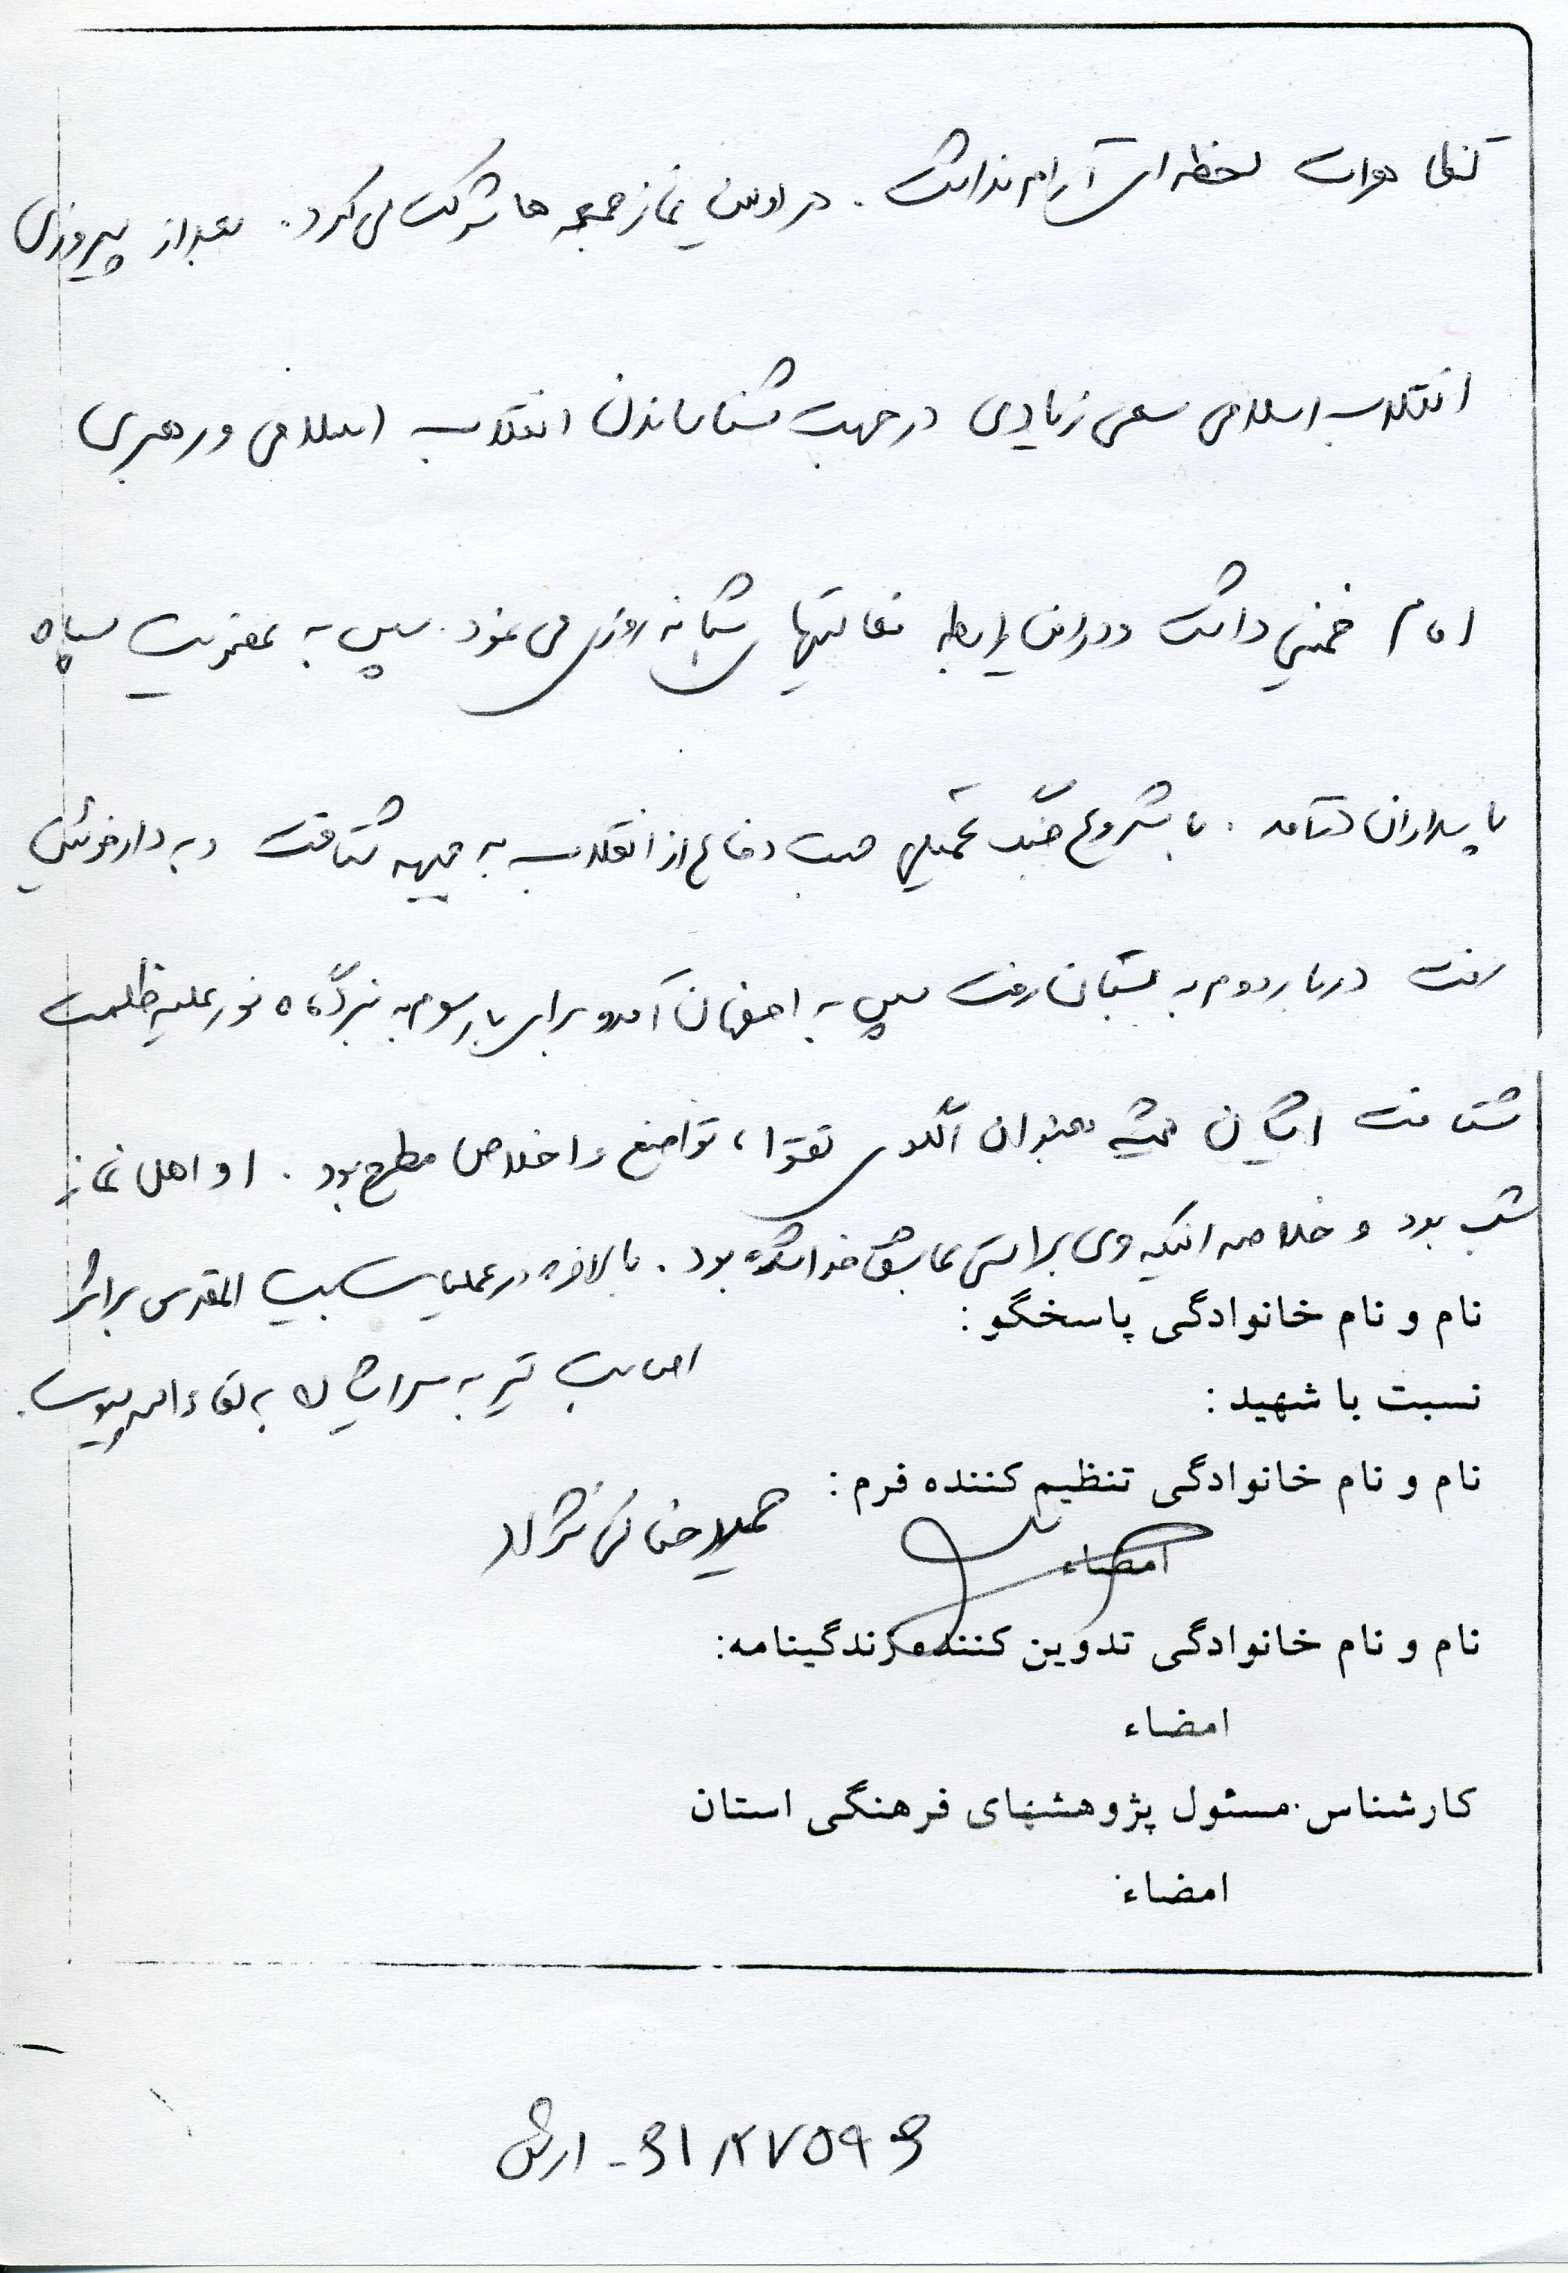 لحظه ای آرام نداشت . در اولین نماز جمعه ها شرکت می کرد . بعد از پیروزی
انقلاب اسلامی سعی زیادی در جهت شناساندن انقلاب اسلامی و رهبری
امام خمینی داشت و در این رابطه فعالیتهای شبانه روزی می نمود . سپس به عضویت سپاه
پاسداران درآمد . با شروع جنگ تحمیلی جهت دفاع از انقلاب به جبهه شتافت و به دارخوئین
رفت در بار دوم به بستان رفت سپس به اصفهان آمد و برای بار سوم به نبردگاه نور علیه ظلمت
شتافت ایشان همیشه بعنوان الگوی تقوا ، تواضع و اخلاص مطرح بود . او اهل نماز
شب بود و خلاصه اینکه وی براستی عاشق خدا شده بود . بالاخره در عملیات بیت المقدس بر اثر
نام و نام خانوادگی پاسخگو :
اصابت تیر به سر ایشان به لقاء الله پیوست .
نسبت با شهید :
نام و نام خانوادگی تنظیم کننده فرم :
امضاء
نام و نام خانوادگی تدوین کننده زندگینامه:
امضاء
کارشناس مسئول پژوهشهای فرهنگی استان
امضاء